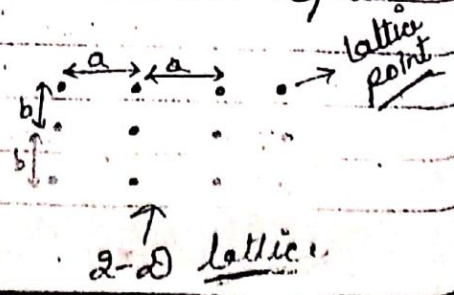 a a lattice point
b
b
2-D lattice.